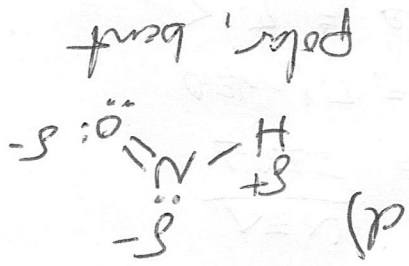 d) δ-
δ+
H-N̈=Ö: δ-
polar, bent